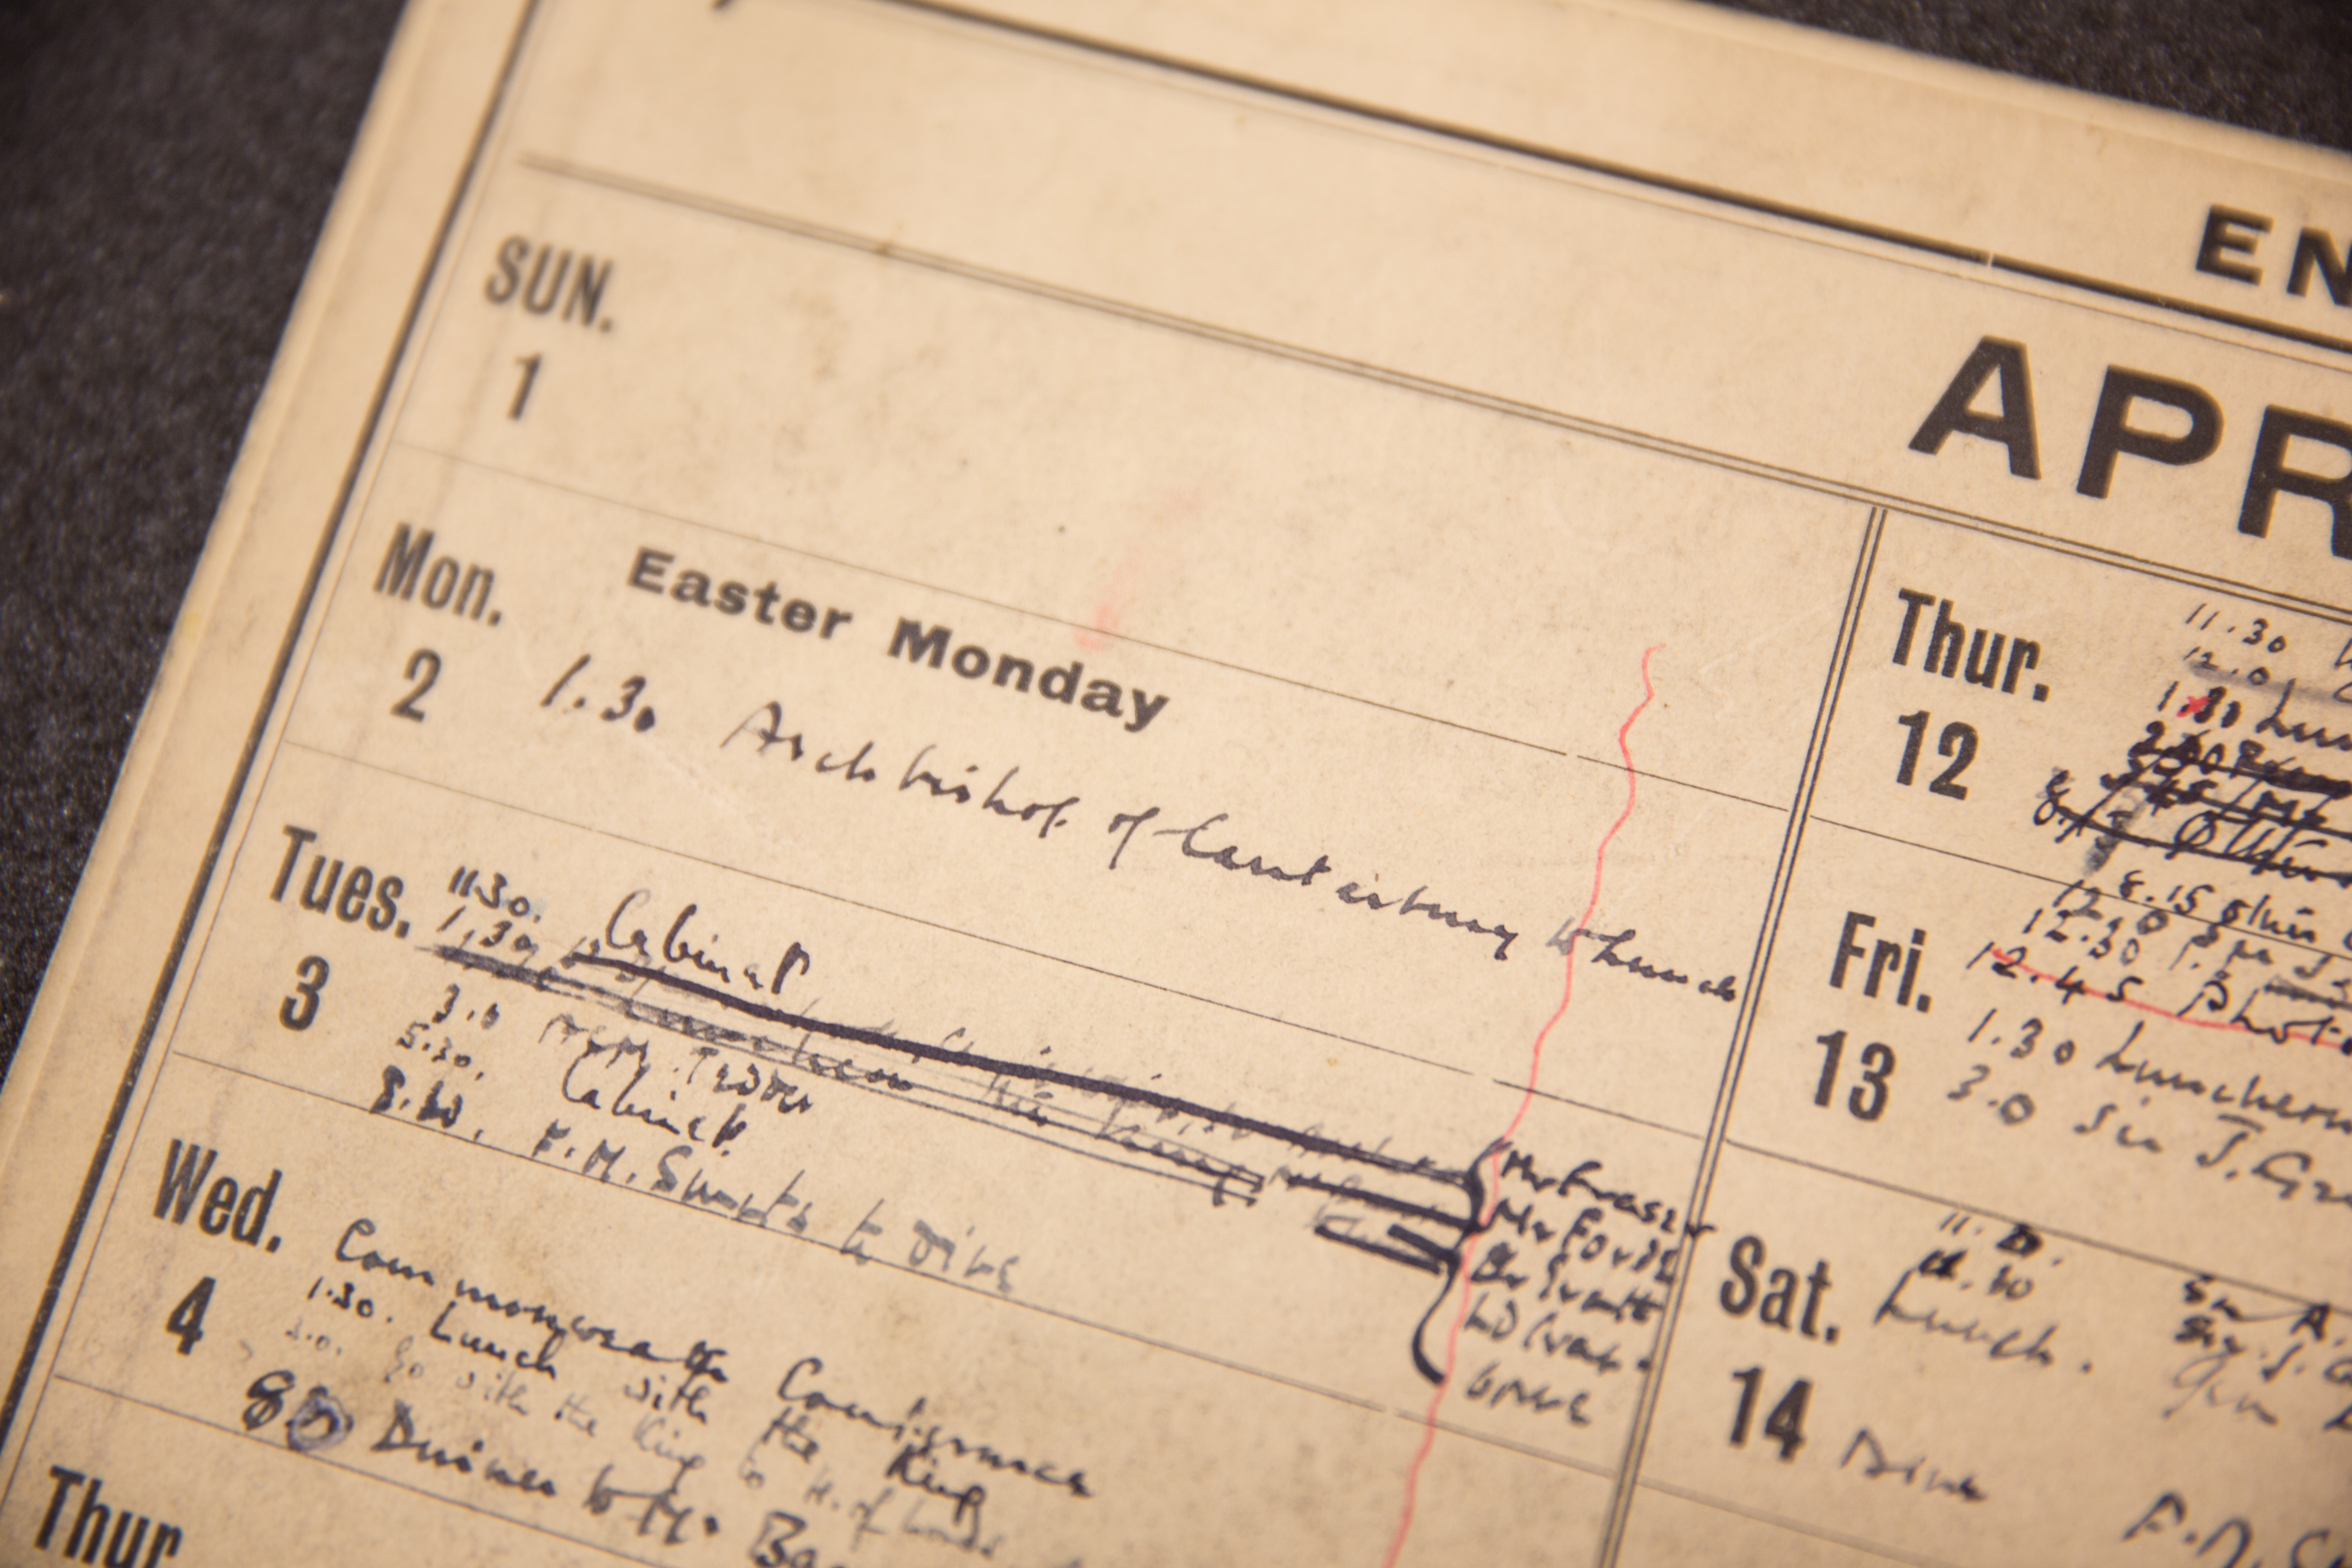 EN
APR
SUN.
1
Mon.
2
Easter Monday
1.30 Archbishop of Canterbury to Lunch
Tues.
3
11.30. Cabinet
1.30
3.0
5.30. Cabinet
8.30. F.M. Smuts to dine
Mr Fraser
Mr Forde
Dr Evatt
Ld Cran-
borne
Wed.
4
Commonwealth Conference
1.30. Lunch with the King
Go with the King to H. of Lords
Dinner to Mr
Thur
Thur.
12
11.30
12.0
1.30 Lun
8.15
Fri.
13
12.0
12.30
12.45 Phot
1.30 Luncheon
3.0 Sir J. Gr
Sat.
14
Lunch.
Dine